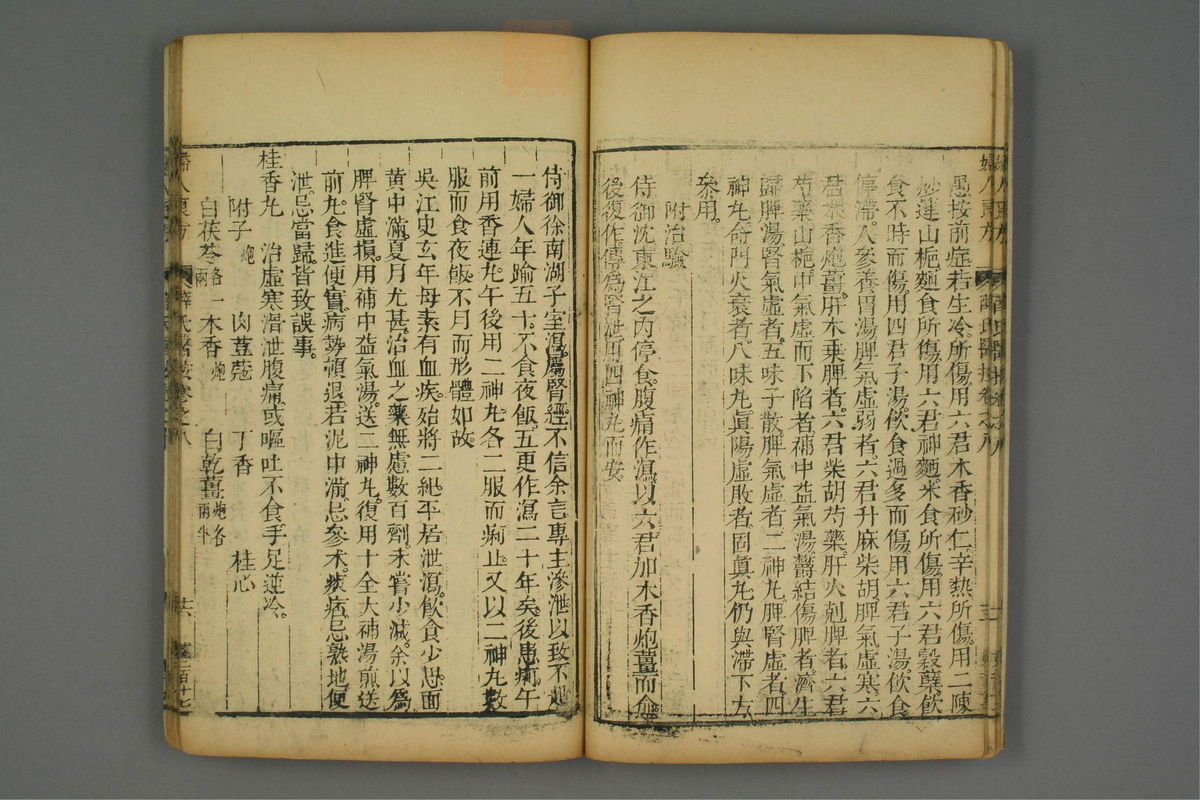 愚按前症若生冷所傷用六君木香砂仁辛熱所傷用二陳
炒連山梔麵食所傷用六君神麵米食所傷用六君穀蘖飲
食不時而傷用四君子湯飲食過多而傷用六君子湯飲食
停滯人參養胃湯脾氣虛弱者六君升麻柴胡脾氣虛寒六
君木香炮薑肝木乗脾者六君柴胡芍藥肝火剋脾者六君
芍藥山梔中氣虛而下陷者補中益氣湯鬱結傷脾者濟生
歸脾湯腎氣虛者五味子散脾氣虛者二神丸脾腎虛者四
神丸命門火衰者八味丸真陽虛敗者固真丸仍與滯下方
叅用
附治驗
侍御沈東江之內停食腹痛作瀉以六君加木香炮薑而愈
後復作傳為腎泄用四神丸而安
侍御徐南湖子室瀉屬腎經不信余言專主滲泄以致不起
一婦人年踰五十不食夜飯五更作瀉二十年矣後患痢午
前用香連丸午後用二神丸各二服而痢止又以二神丸數
服而食夜飯不月而形體如故
吳江史玄年母素有血疾殆將二紀平居泄瀉飲食少思面
黃中滿夏月尤甚治血之藥無慮數百劑未嘗少減余以為
脾腎虛損用補中益氣湯送二神丸復用十全大補湯煎送
前丸食進便實病勢頓退若泥中滿忌參朮痰痞忌熟地便
泄忌當歸皆致誤事
桂香丸 治虛寒滑泄腹痛或嘔吐不食手足逆冷
附子炮 肉荳蔻 丁香 桂心
白茯苓各一兩 木香炮 白乾薑炮各兩半